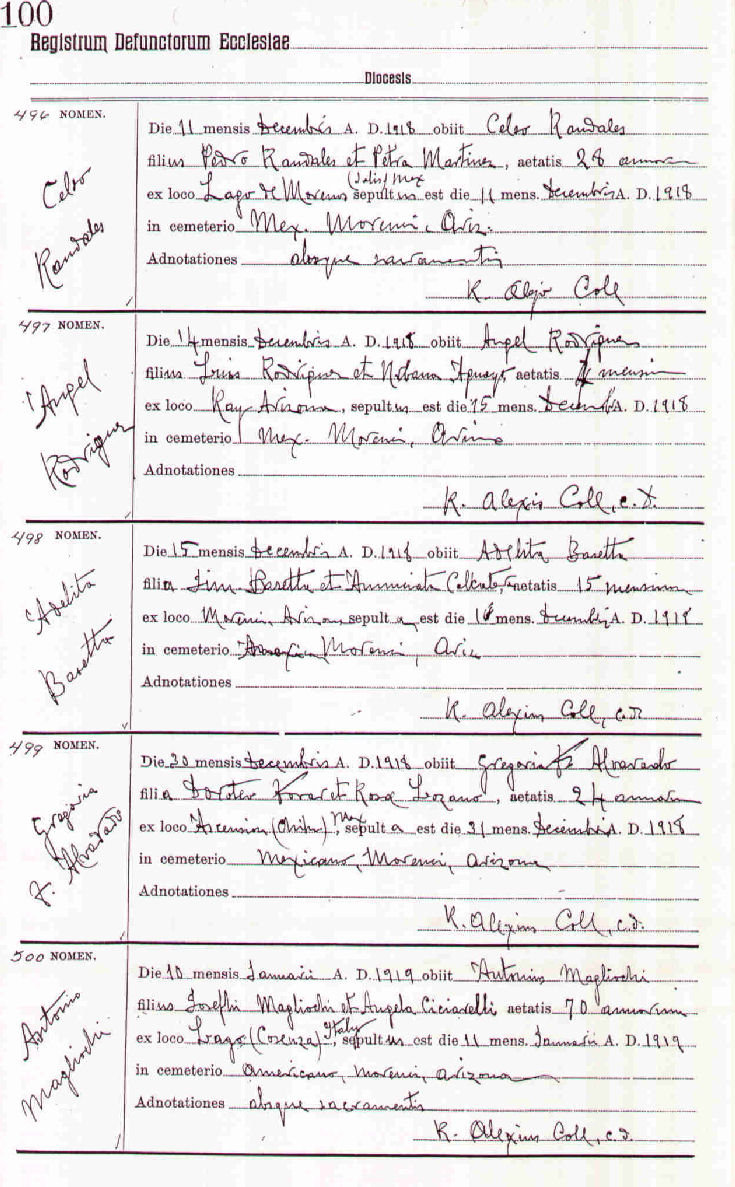 100
Registrum Defunctorum Ecclesiae
Diocesis
496 NOMEN.
Celso
Randales
Die 11 mensis Decembris A. D. 1918 obiit Celso Randales
filius Pedro Randales et Petra Martinez, aetatis 28 annorum
ex loco Lago de Moreno (Jalis) Mex sepultus est die 11 mens. Decembris A. D. 1918
in cemeterio Mex. Morenci, Ariz.
Adnotationes absque sacramentis
R. Alejo Coll
497 NOMEN.
Angel
Rodriguez
Die 14 mensis Decembris A. D. 1918 obiit Angel Rodriguez
filius Luis Rodriguez et aetatis mensium
ex loco Ray Arizona, sepultus est die 15 mens. Decembris A. D. 1918
in cemeterio Mex. Morenci, Arizona
Adnotationes
R. Alexis Coll, c.d.
498 NOMEN.
Adelita
Baretta
Die 15 mensis Decembris A. D. 1918 obiit Adelita Baretta
filia Jim Baretta et Annunziata aetatis 15 mensium
ex loco Morenci, Arizona sepulta est die 16 mens. Decembris A. D. 1918
in cemeterio Morenci, Ariz
Adnotationes
R. Alexius Coll, c.d.
499 NOMEN.
Gregoria
F. Alvarado
Die 30 mensis Decembris A. D. 1918 obiit Gregoria F. Alvarado
filia Doroteo et Rosa Lozano, aetatis 24 annorum
ex loco Ascension (Chihu) Mex, sepulta est die 31 mens. Decembris A. D. 1918
in cemeterio Mexicano, Morenci, Arizona
Adnotationes
R. Alexius Coll, c.d.
500 NOMEN.
Antonio
Magliochi
Die 10 mensis Januarii A. D. 1919 obiit Antonius Magliochi
filius Joseph Magliochi et Angela Ciciarelli aetatis 70 annorum
ex loco Lago (Cosenza) Italy, sepultus est die 11 mens. Januarii A. D. 1919
in cemeterio Americano, Morenci, Arizona
Adnotationes absque sacramentis
R. Alexius Coll, c.d.